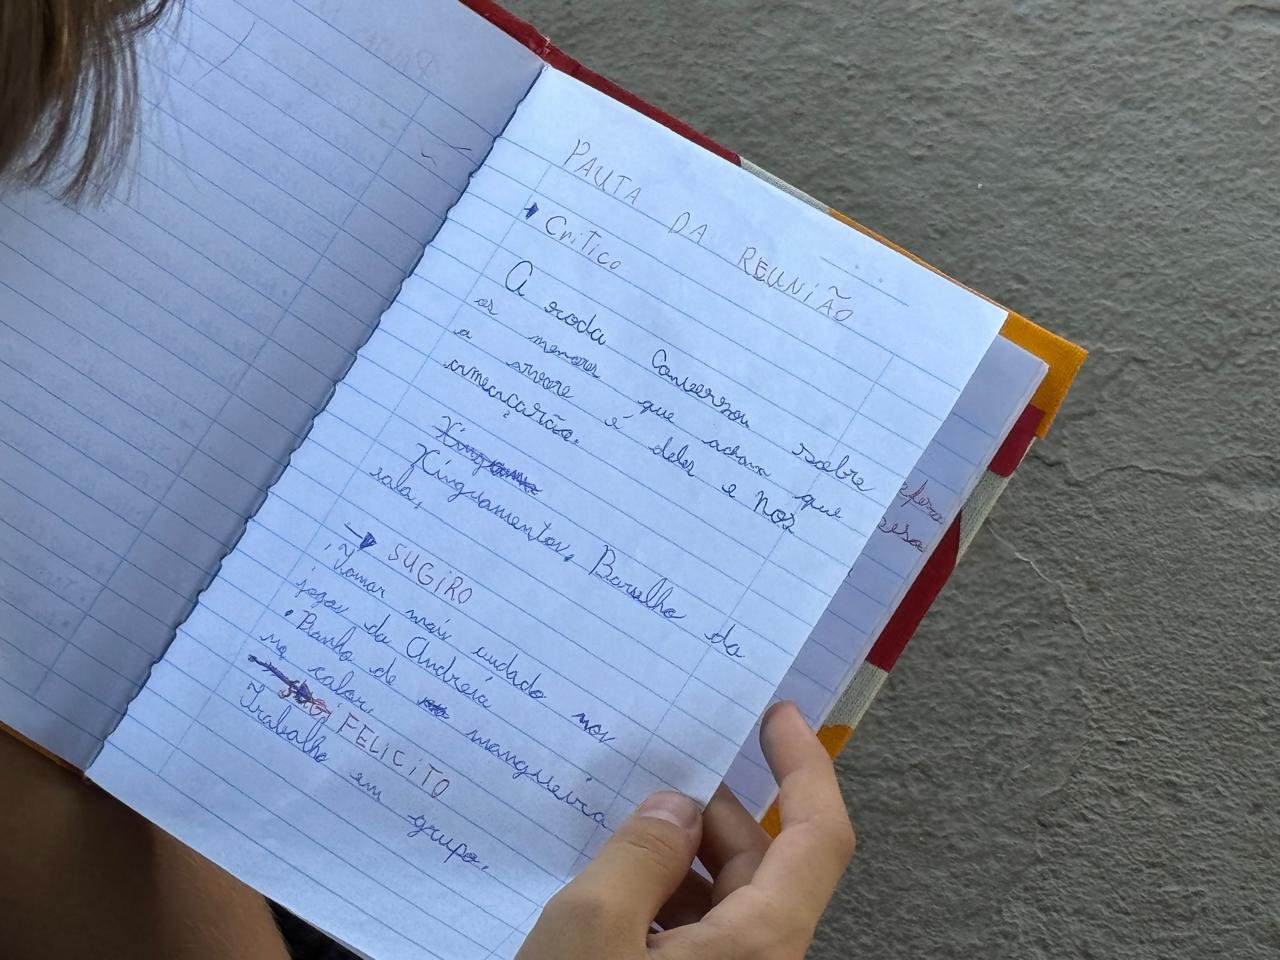 PAUTA DA REUNIÃO
Critico
A roda Conversou sobre
os menores que acham que
a árvore é deles e nos
ameaçarão.
Xinguamentos, Barulho da
sala,
SUGIRO
Tomar mais cuidado nos
jogos da Andreia
• Banho de mangueira
no calor.
FELICITO
Trabalho em grupo.